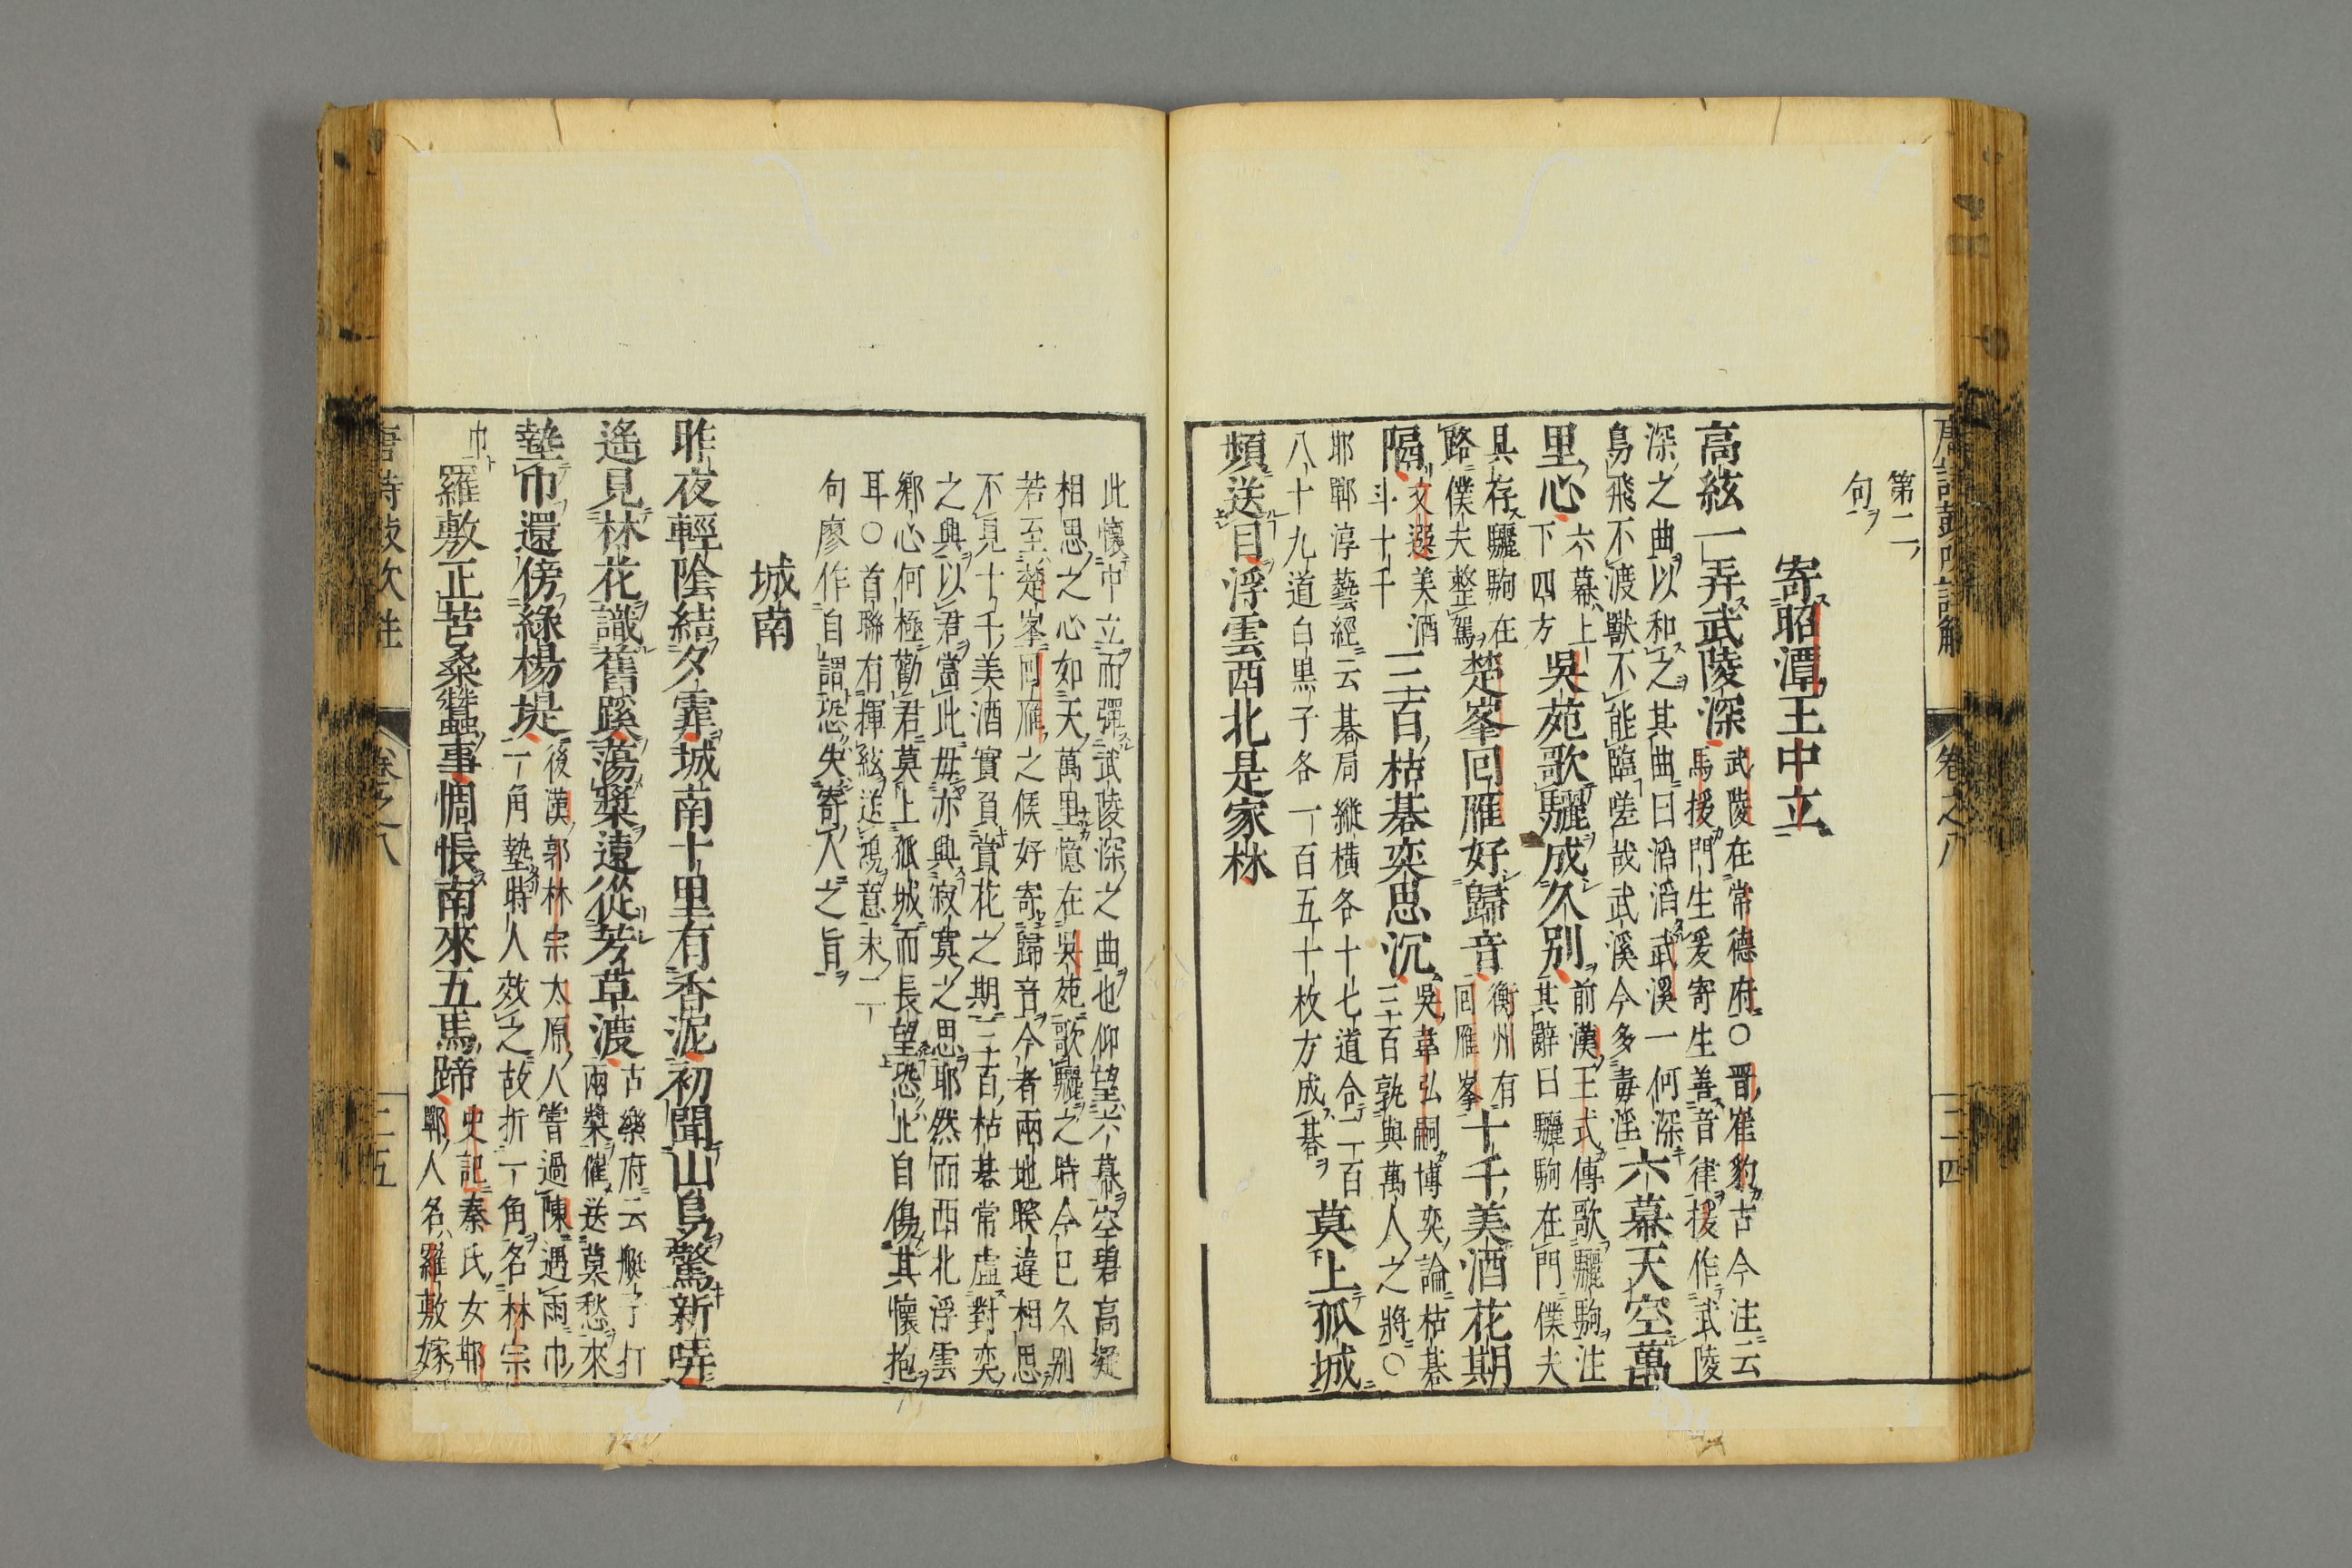 第二
句
寄昭潭王中立
高絃一弄武陵深
武陵在常德府○晋崔豹古今注云
馬援門生爰寄生善音律援作武陵
深之曲以和之其曲曰滔滔武溪一何深
鳥飛不渡獸不能臨嗟哉武溪今多毒淫
六幕天空萬
里心
六幕上
下四方
吳苑歌驪成久别
前漢王式傳歌驪駒注
其辭曰驪駒在門僕夫
具存驪駒在
路僕夫整駕
楚峯回雁好歸音
衡州有
回雁峯
十千美酒花期
隔
文選美酒
斗十千
三百枯棊奕思沉
吳韋弘嗣博奕論枯棊
三百孰與萬人之將○
耶鄲淳藝經云棊局縱横各十七道合二百
八十九道白黒子各一百五十枚方成棊
莫上孤城
頻送目浮雲西北是家林
卷之八
三十四
此懐中立而彈武陵深之曲也仰望六幕空碧高疑
相思之心如天萬里憶在吳苑歌驪之時今已久别
若至楚峯回雁之候好寄歸音今者兩地睽違相思
不見十千美酒實負賞花之期三百枯棊常虛對奕
之興以君當此毋亦興寂寞之思耶然而西北浮雲
鄉心何極勸君莫上孤城而長望恐止自傷其懷抱
耳○首聯有揮絃送鴻意末二
句廖作自謂恐失寄人之旨
城南
昨夜輕陰結夕霏城南十里有香泥初聞山鳥驚新哢
遙見林花識舊蹊蕩槳遠從芳草渡
古樂府云艇子打
兩槳催送莫愁來
墊巾還傍綠楊堤
後漢郭林宗太原人嘗過陳遇雨巾
一角墊時人效之故折一角名林宗
巾
羅敷正苦桑蠶事惆悵南來五馬蹄
史記秦氏女耶
鄲人名羅敷嫁
唐詩鼓吹註
卷之八
三五